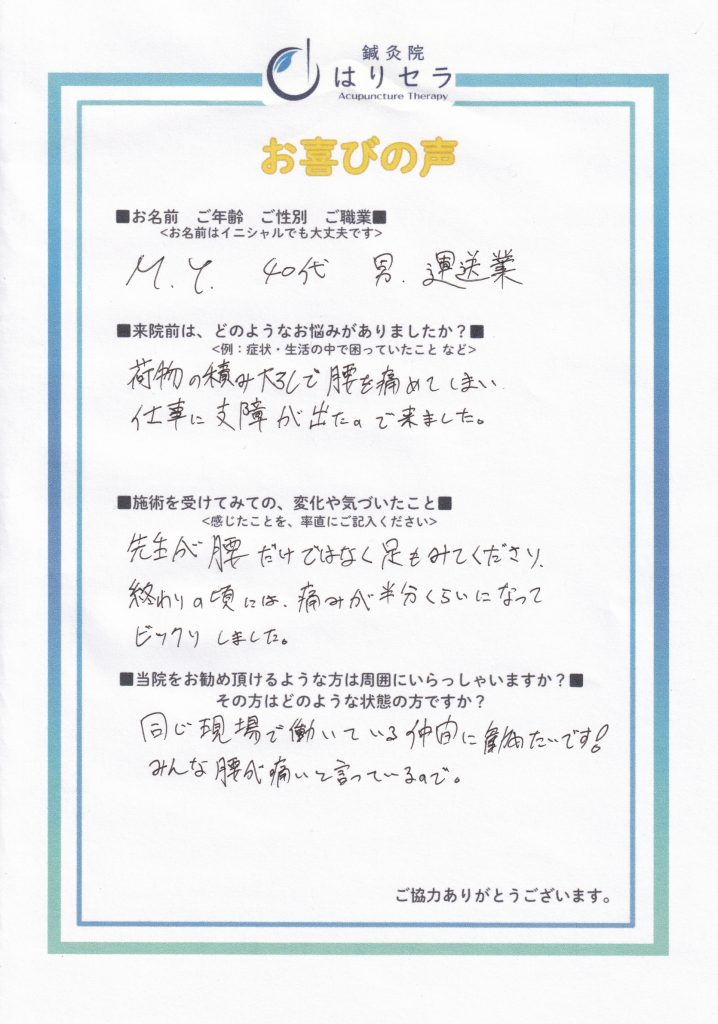 鍼灸院
はりセラ
Acupuncture Therapy
お喜びの声
■お名前 ご年齢 ご性別 ご職業■
<お名前はイニシャルでも大丈夫です>
M.Y. 40代 男. 運送業
■来院前は、どのようなお悩みがありましたか？■
<例：症状・生活の中で困っていたこと など>
荷物の積み下ろしで腰を痛めてしまい
仕事に支障が出たので来ました。
■施術を受けてみての、変化や気づいたこと■
<感じたことを、率直にご記入ください>
先生が腰だけではなく足もみてくださり、
終わりの頃には、痛みが半分くらいになって
ビックリしました。
■当院をお勧め頂けるような方は周囲にいらっしゃいますか？■
その方はどのような状態の方ですか？
同じ現場で働いている仲間に勧めたいです！
みんな腰が痛いと言っているので。
ご協力ありがとうございます。